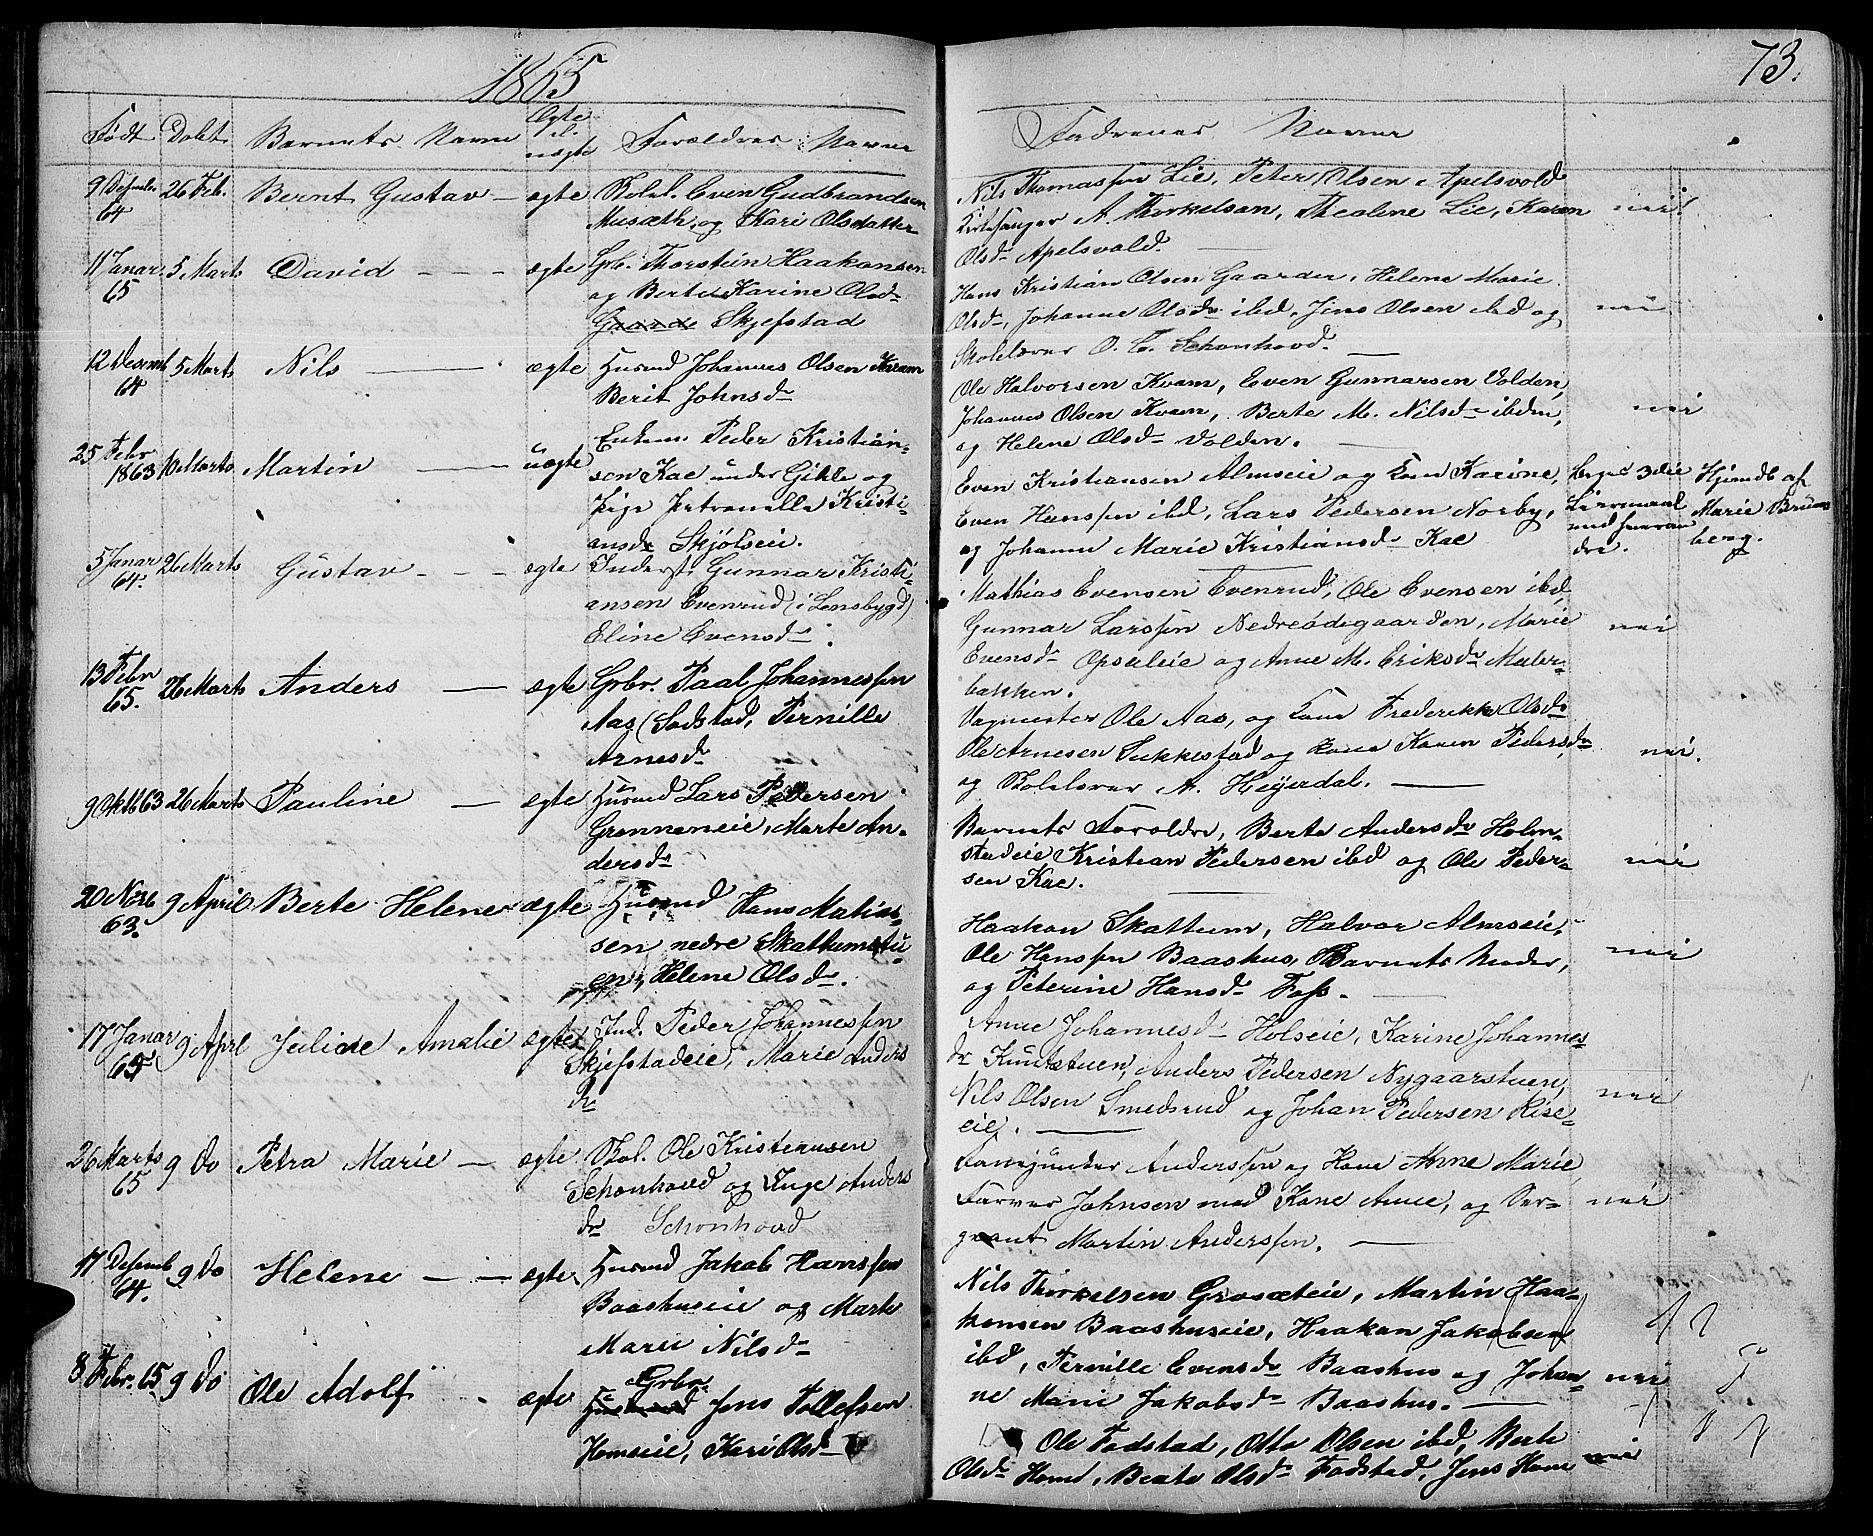 1865
73.
Født Døbt Barnets Navne Ægte el. uægte Forældres Navne
Fadrenes Navne
9 Desember 64 26 Feb. Bernt Gustav — ægte Skolel. Even Gudbrandsen
Musæth, og Kari Olsdatter
Nils Thomassen Lie, Peter Olsen Apelsvold
Kirkesanger A. Thorkelsen, Thealine Lie, Karen nei!
Olsdr Apelsvold. —
11 Januar 65 5 Marts David — — — ægte Grb. Thorstein Haakonsen
og Berte Karine Olsdr
Gaarde Skjefstad
Hans Kristian Olsen Gaarder, Helene Marie
Olsdr, Johanne Olsdr ibd, Jens Olsen ibd og nei
Skolelærer O. C. Schønhovd. —
12 Desemb 64 5 Marts Nils — ægte Husmd Johannes Olsen Kvam
Berit Johnsdr
Ole Halvorsen Kvam, Even Gunnarsen Volden,
Johannes Olsen Kvam, Berte M. Nilsdr ibdm, nei
og Helene Olsdr Volden. —
25 Febr 1863 10 Marts Martin — uægte Enkem. Peder Kristian-
sen Kae under Gikle og
Pige Petronelle Kristi-
ansdr Skjølseie.
Even Kristiansen Almseie og Kone Karine, begges 3die Hjemdb af
Even Hanssen ibd, Lars Pedersen Norby, Leiermaal Marie Bruns
og Johanne Marie Kristiansdr Kae med hveran dre. berg.
5 Januar 64. 26 Marts Gustav — — — ægte Inderst. Gunnar Kristi-
ansen Evenrud (i Lensbygd)
Eline Evensdr.
Mathias Evensen Evenrud, Ole Evensen ibd,
Gunnar Larssen Nedreødegaarden, Marie nei
Evensdr Opsaleie og Anne M. Eriksdr Maler-
bakken.
13 Febr 65. 26 Marts Anders — ægte Grbr. Paal Johannessen
Aas (Sodstad, Pernille
Arnesdr
Vagmester Ole Aas, og Kone Frederikke Olsdr
Ole Arnesen Sukkestad og Kone Karen Pedersdr nei.
og Skolelærer A. Heyerdal. —
9 Okt 63 26 Marts Pauline — ægte Husmd Lars Pedersen
Grønneneie, Marte An-
dersdr
Barnets Forældre, Berte Andersdr Holm-
stadeie, Kristian Pedersen ibd og Ole Peder- nei
sen Kae.
20 Novb 63. 9 April Berte Helene ægte Husmd Hans Matias-
sen nedre Skattumstu-
en, Helene Olsdr.
Haakon Skattum, Halvor Almseie,
Ole Hanssen Baashus, Barnets Moder, nei
og Peterine Hansdr Foss. —
17 Januar 65 9 Aprl Juliane Amalie ægte Ind. Peder Johannessen
Skjefstadeie, Marie Anders
dr
Anne Johannesdr Holseie, Karine Johannes-
dr Knutstuen, Anders Pedersen Nygaarstuen,
Nils Olsen Smedsrud og Johan Pedersen Rise- nei
eie. —
26 Marts 65 9 do Petra Marie — ægte Skol. Ole Kristiansen
Schønhovd og Inge Anders
dr Schønhovd
Fanejunker Anderssen og Kone Anne Marie,
Farver Johnsen med Kone Anne, og Ser- nei
geant Martin Anderssen. —
17 Desemb 64. 9 do Helene — — ægte Husmd Jakob Hanssen
Baashuseie og Marte
Marie Nilsdr
Nils Thorkelsen Grosæteie, Martin Haa-
konsen Baashuseie, Haakon Jakobsen
ibd, Pernille Evensdr Baashus og Johan- nei
ne Marie Jakobsdr Baashus. —
8 Febr. 65 9 do Ole Adolf ægte Husmd Grbr. Jens Tollefsen
Homseie, Kari Olsdr
Ole Fodstad, Otto Olsen ibd, Berte
Olsdr Homd, Beate Olsdr Fodstad, Jens Hom nei